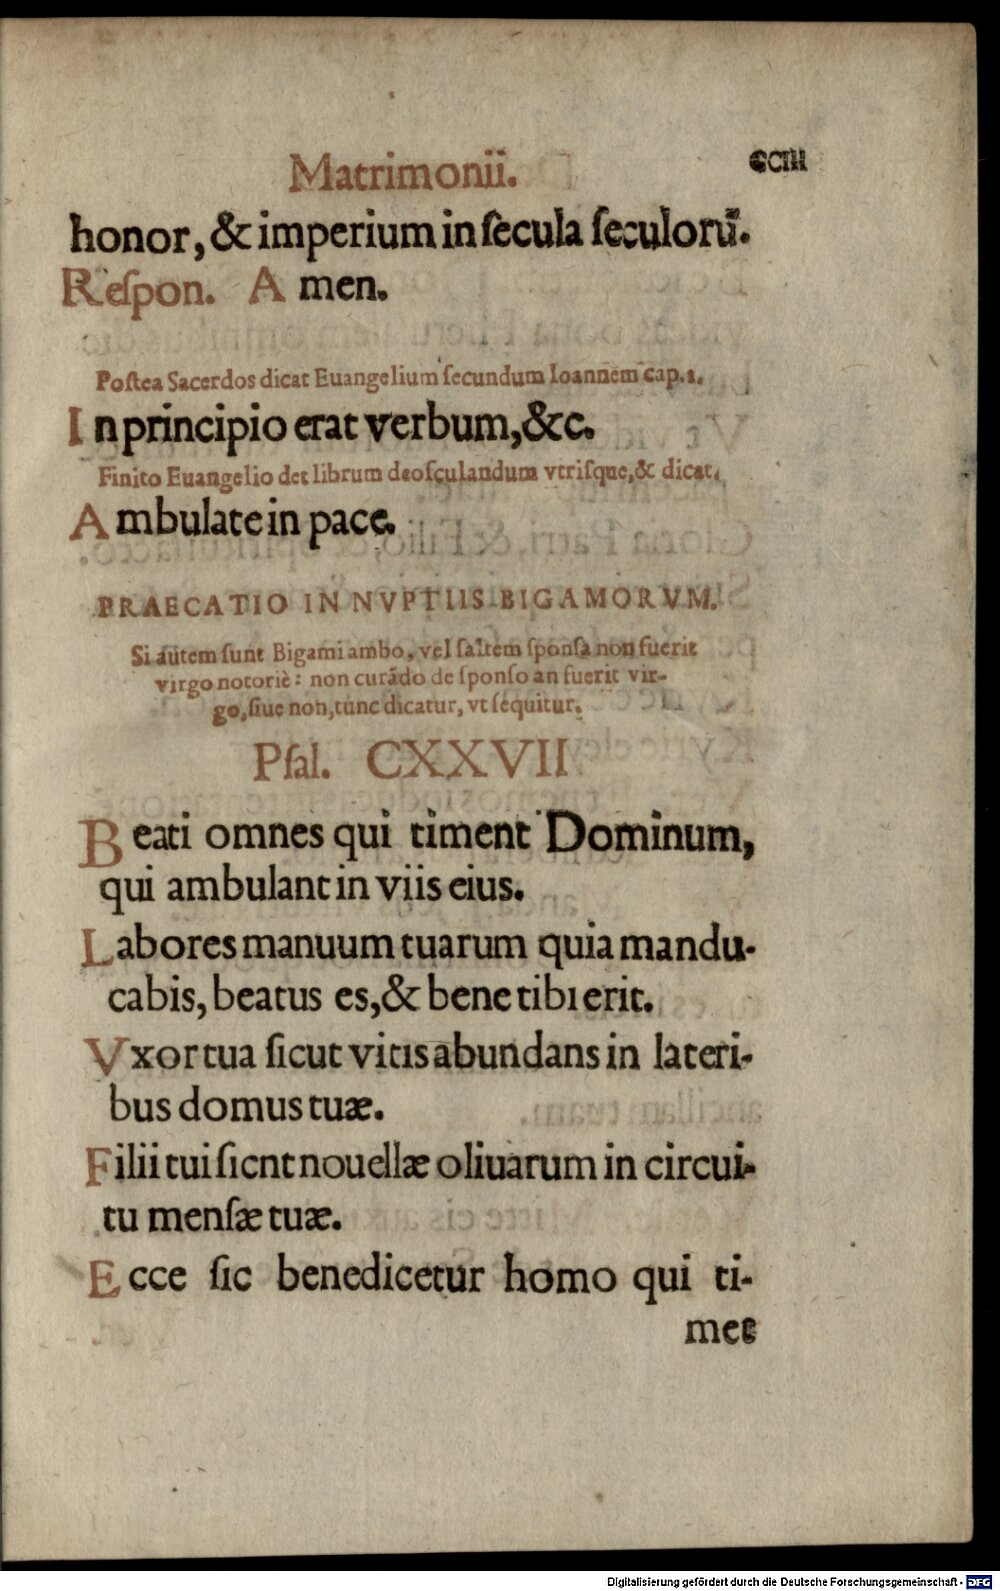 Matrimonii. CCIII
honor, & imperium in ſecula ſeculorū.
Reſpon. Amen.
Poſtea Sacerdos dicat Euangelium ſecundum Ioannem cap.1.
In principio erat verbum, &c.
Finito Euangelio det librum deoſculandum vtriſque, & dicat.
Ambulate in pace.
PRAECATIO IN NVPTIIS BIGAMORVM.
Si autem ſunt Bigami ambo, vel ſaltem ſponſa non fuerit
virgo notoriè: non curādo de ſponſo an fuerit vir-
go, ſiue non, tunc dicatur, vt ſequitur.
Pſal. CXXVII
Beati omnes qui timent Dominum,
qui ambulant in viis eius.
Labores manuum tuarum quia mandu-
cabis, beatus es, & bene tibi erit.
Vxor tua ſicut vitis abundans in lateri-
bus domus tuæ.
Filii tui ſicnt nouellæ oliuarum in circui-
tu menſæ tuæ.
Ecce ſic benedicetur homo qui ti-
met
Digitalisierung gefördert durch die Deutsche Forschungsgemeinschaft - DFG